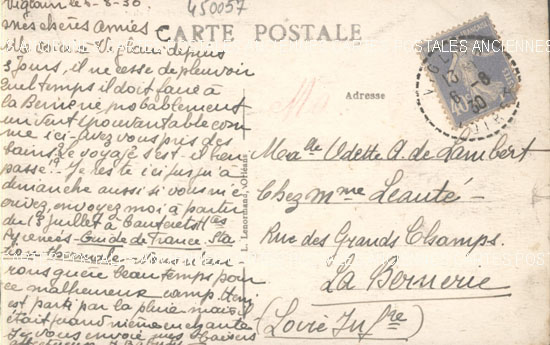 450057
CARTE POSTALE
Viglain le 5-8-30
mes chères amies
Me voici à Viglain depuis
3 jours, il ne cesse de pleuvoir
quel temps il doit faire à
la Bernerie probablement
un vent épouvantable com
me ici - avez vous pris des
bains, le voyage s'est-il bien
passé? Je reste ici jusqu'à
dimanche aussi si vous m'é
crivez, envoyez moi à partir
du juillet à Cauterets Htes
Pyrénées - Guide de France. Sta
beau temps pour
ce malheureux camp.
est parti par la pluie mais il
était quand même enchanté
Je vous envoie mes baisers
Adresse
Melle Odette A. de Lambert
Chez Mme Leauté -
Rue des Grands Champs.
La Bernerie
(Loire Infre)
L. Lenormand, Orléans
13
6 - 8
30
LOIRET